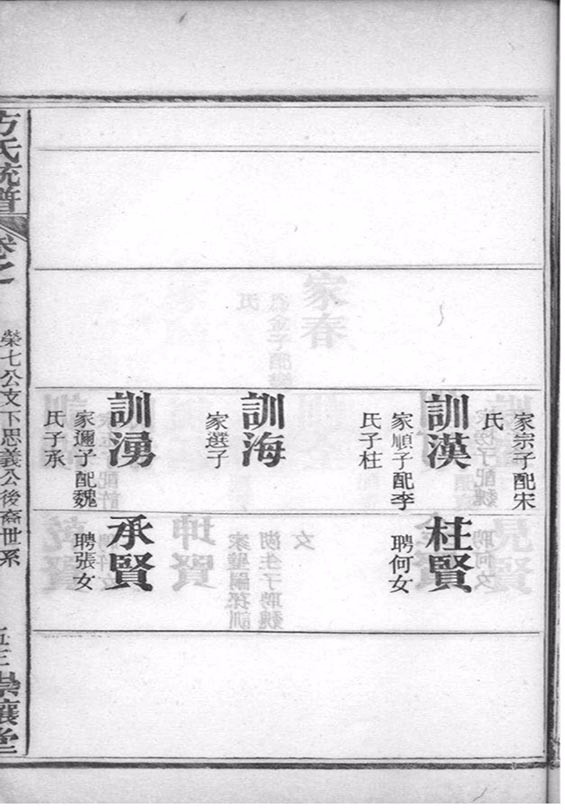 家宗子配宋
氏
訓漢
家順子配李
氏子杜
訓海
家選子
訓湧
家邇子配魏
氏子承
杜賢
聘何女
承賢
聘張女
方氏統譜
卷之
榮七公支下思義公後裔世系
崇讓堂